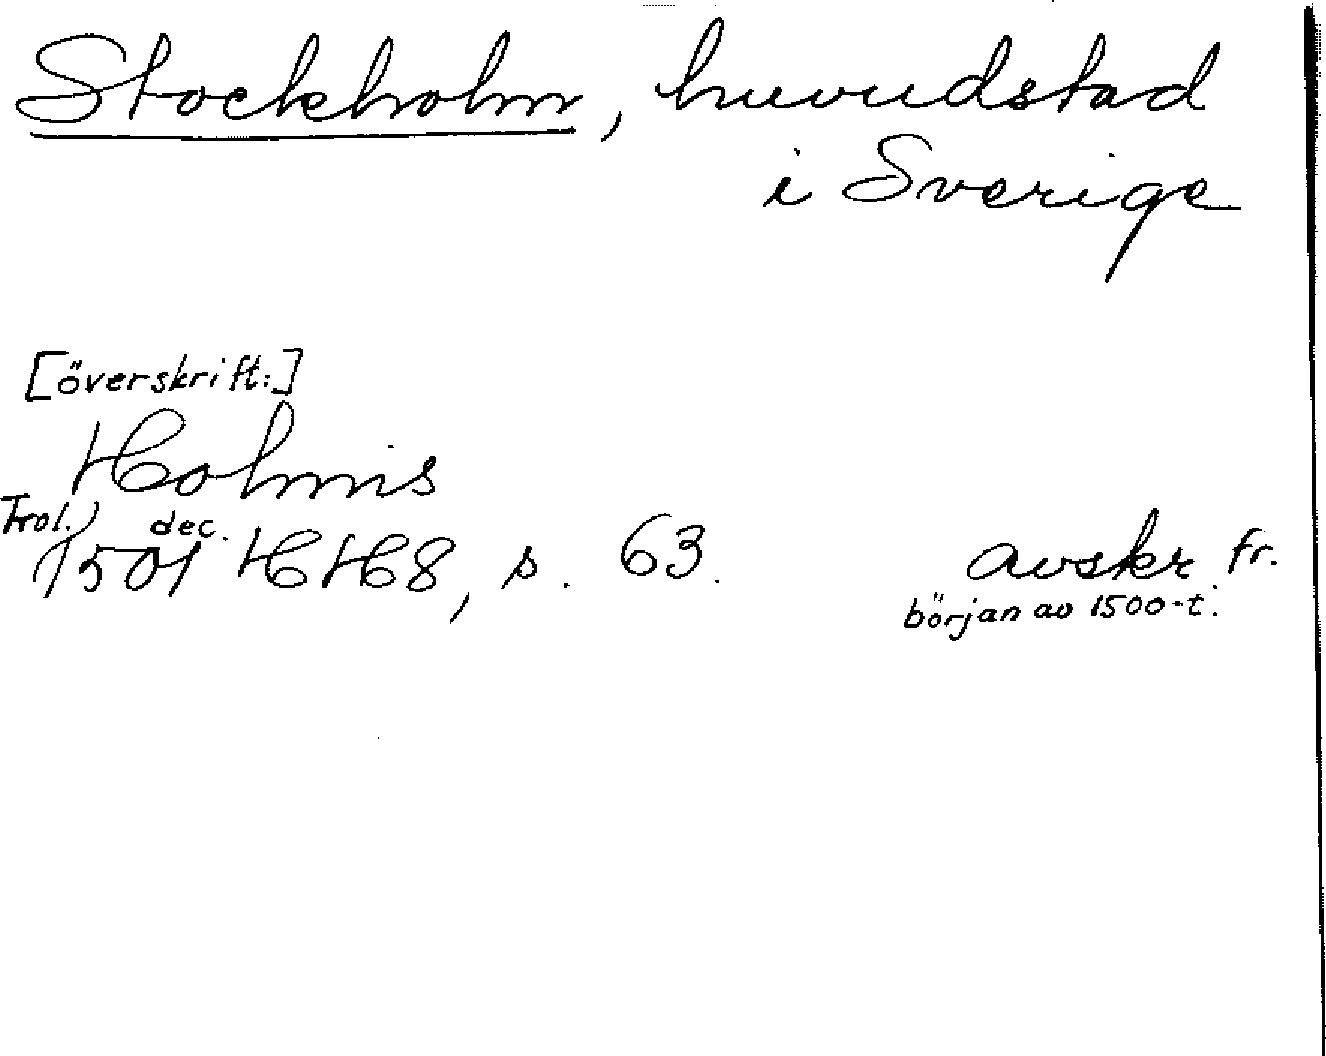 Stockholm, huvudstad
i Sverige
[överskrift:]
Holmis
Trol.) dec.
1501 HH8, s. 63. avskr. fr.
början av 1500-t.